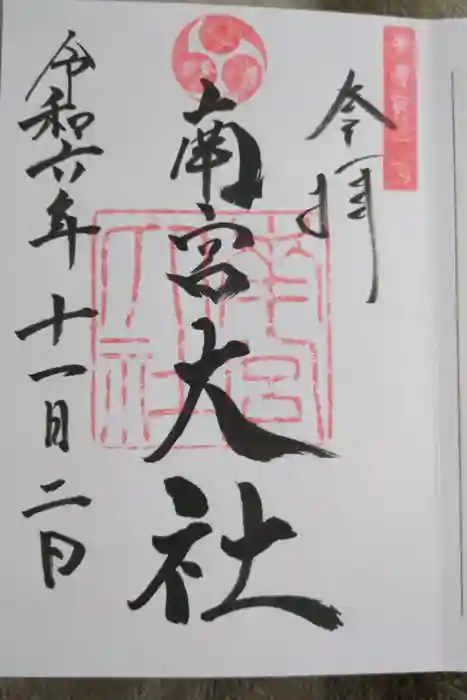 奉拝
南宮大社
南宮
大社
令和六年十一月二日